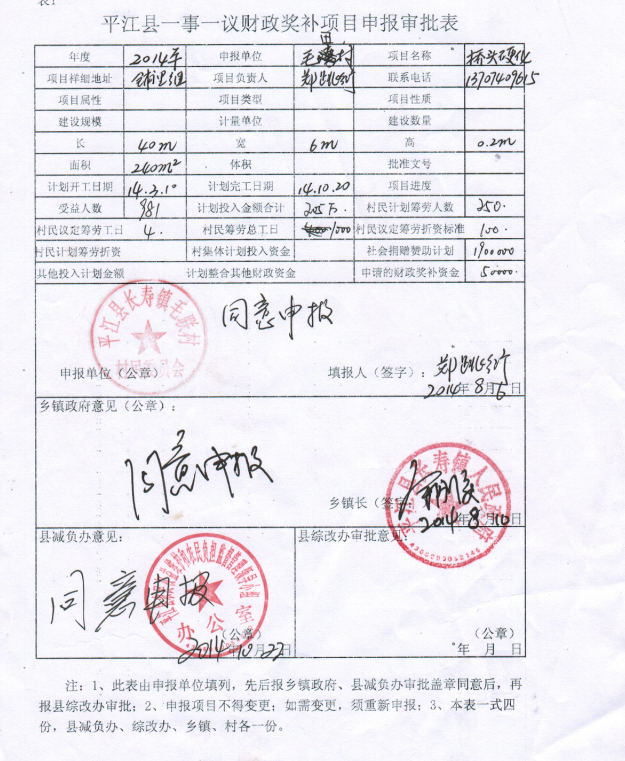 表1
平江县一事一议财政奖补项目申报审批表
年度 2014年 申报单位 毛 村 项目名称 桥头硬化
项目样细地址 组 项目负责人 郑 联系电话 13707409615
项目属性 项目类型 项目性质
建设规模 计量单位 建设数量
长 40m 宽 6m 高 0.2m
面积 240m² 体积 批准文号
计划开工日期 14.3.10 计划完工日期 14.10.20 项目进度
受益人数 981 计划投入金额合计 205万 村民计划筹劳人数 250.
村民议定筹劳工日 4. 村民筹劳总工日 1000 村民议定筹劳折资标准 100.
村民计划筹劳折资 村集体计划投入资金 社会捐赠赞助计划 1900000
其他投入计划金额 计划整合其他财政资金 申请的财政奖补资金 50000.
平江县长寿镇毛联村
村民委员会
同意申报
申报单位（公章） 填报人（签字）：郑
2014年8月6日
乡镇政府意见（公章）：
同意申报
平江县长寿镇人民政府
乡镇长（签字）
2014年8月10日
县减负办意见： 县综改办审批意见：
同意申报
办公室
（公章） （公章）
2014.10.22 年 月 日
注：1、此表由申报单位填列，先后报乡镇政府、县减负办审批盖章同意后，再
报县综改办审批；2、申报项目不得变更；如需变更，须重新申报；3、本表一式四
份，县减负办、综改办、乡镇、村各一份。